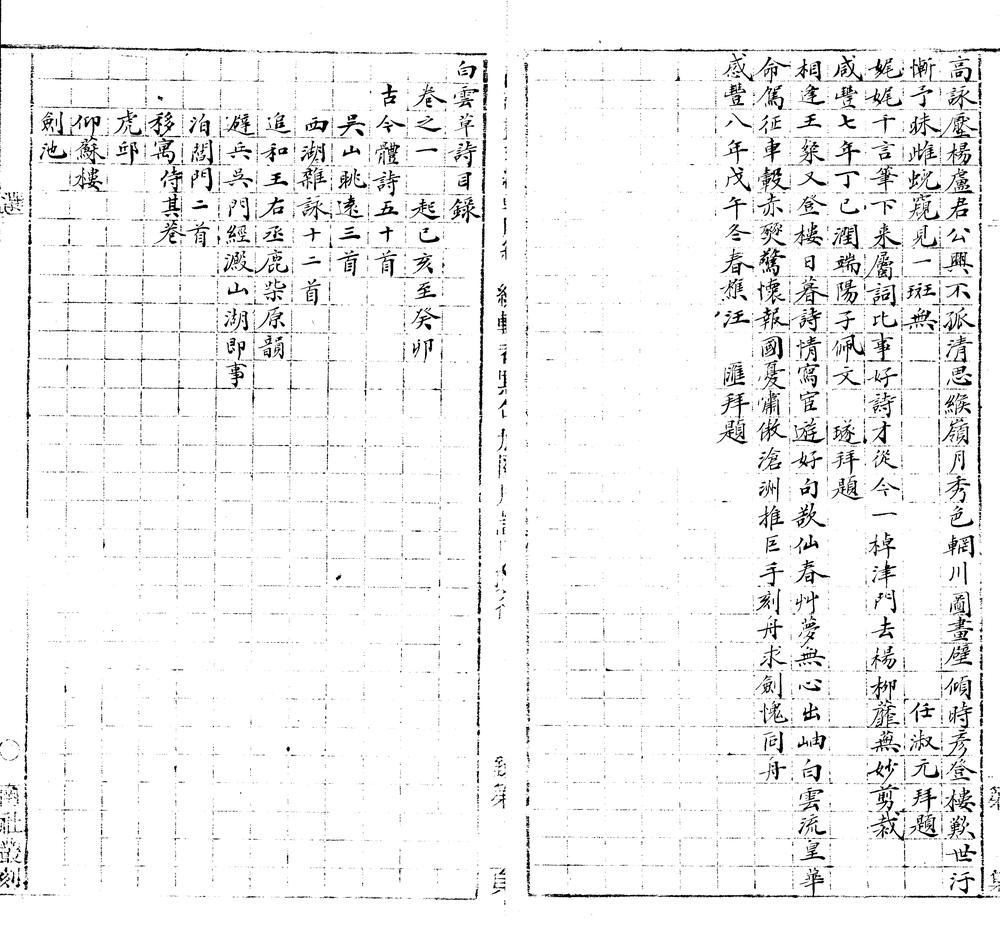 高詠壓楊盧君公興不孤清思緱嶺月秀色輞川圖畫壁傾時彥登樓歎世汙
慚予昧雌蛻窺見一斑無　任淑元拜題
娓娓千言筆下来屬詞比事好詩才從今一棹津門去楊柳蘼蕪妙剪裁
咸豐七年丁巳潤端陽子佩文　璲拜題
相逢王粲又登樓日暮詩情寫宦遊好句欲仙春艸夢無心出岫白雲流皇華
命駕征車轂赤燹驚懷報國憂嘯傲滄洲推巨手刻舟求劍愧同舟
咸豐八年戊午冬春樵汪　匯拜題
白雲草詩目錄
卷之一　起己亥至癸卯
古今體詩五十首
吳山眺遠三首
西湖雜詠十二首
追和王右丞鹿柴原韻
避兵吳門經澱山湖即事
泊閶門二首
移寓侍其巷
虎邱
仰蘇樓
劍池
選
南社叢刻